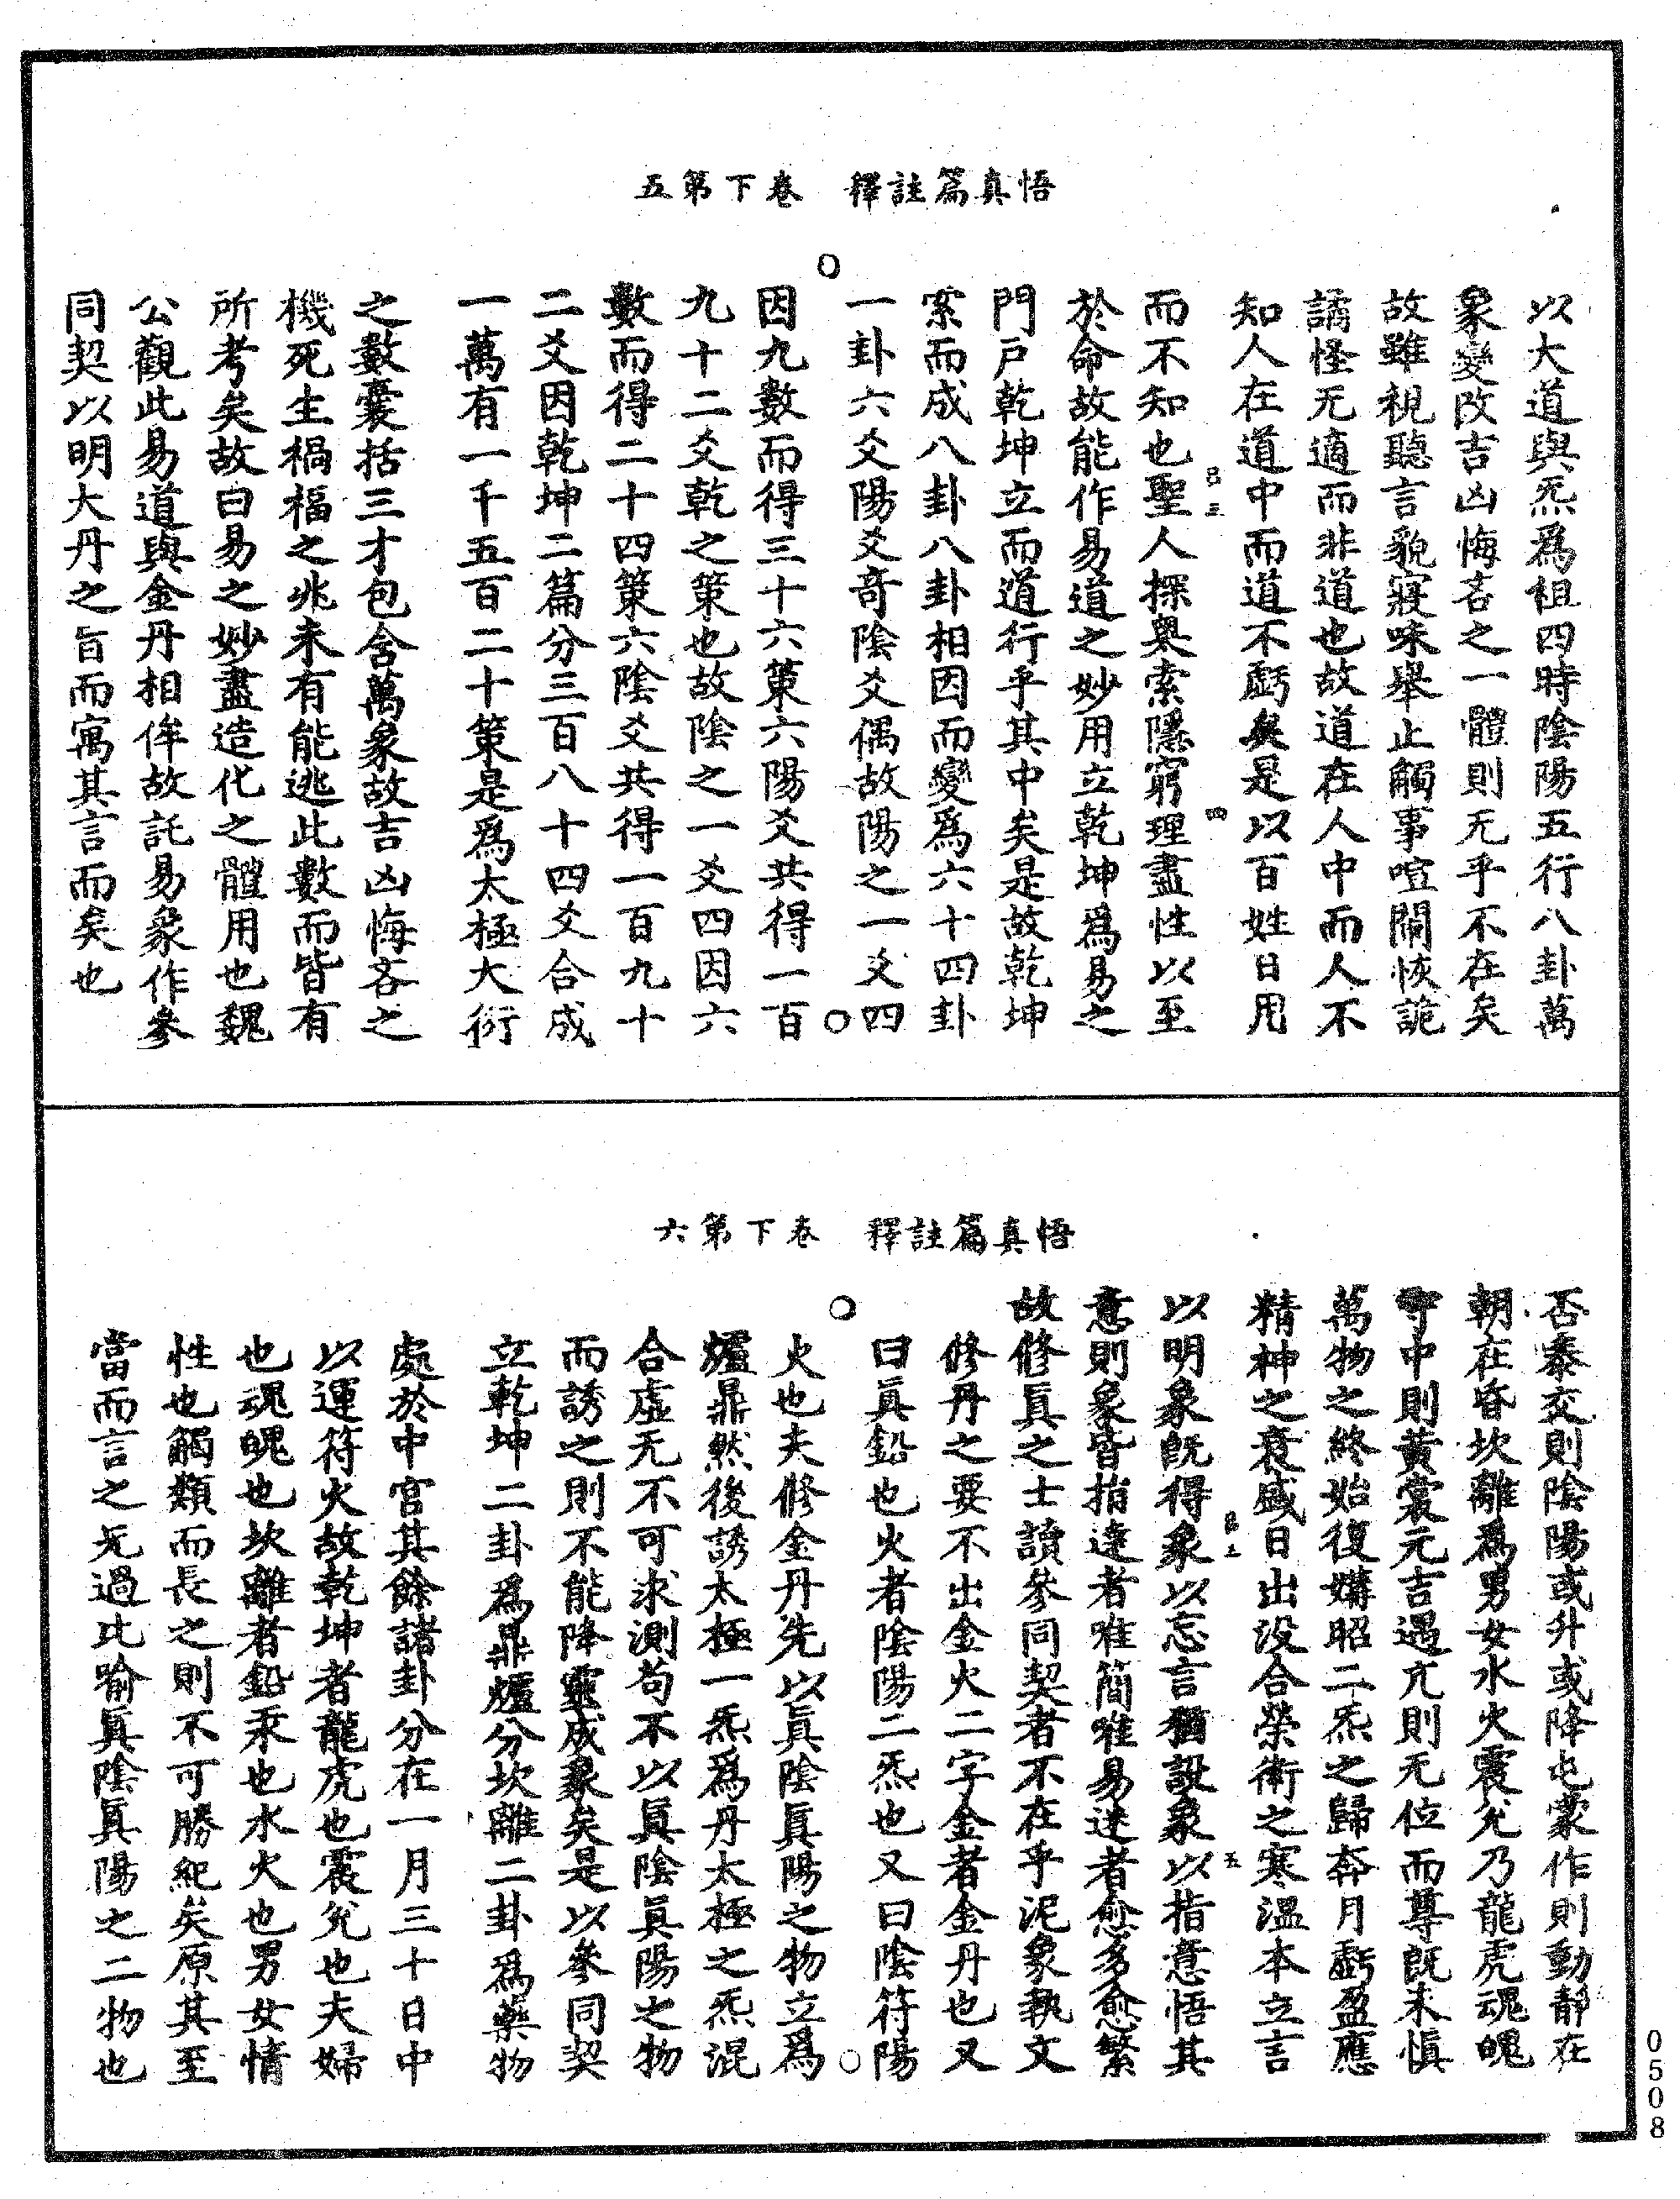 五第下卷　釋註篇真悟
以大道與炁爲祖四時陰陽五行八卦萬
象變改吉凶悔吝之一體則无乎不在矣
故雖視聽言貌寢味舉止觸事喧鬧恢詭
譎怪无適而非道也故道在人中而人不
知人在道中而道不虧矣是以百姓日用
而不知也聖人探奧索隱窮理盡性以至
於命故能作易道之妙用立乾坤爲易之
門户乾坤立而道行乎其中矣是故乾坤
索而成八卦八卦相因而變爲六十四卦
一卦六爻陽爻奇陰爻偶故陽之一爻四
因九數而得三十六策六陽爻共得一百
九十二爻乾之策也故陰之一爻四因六
數而得二十四策六陰爻共得一百九十
二爻因乾坤二篇分三百八十四爻合成
一萬有一千五百二十策是爲太極大衍
之數囊括三才包含萬象故吉凶悔吝之
機死生禍福之兆未有能逃此數而皆有
所考矣故曰易之妙盡造化之體用也魏
公觀此易道與金丹相侔故託易象作參
同契以明大丹之旨而寓其言而矣也
六第下卷　釋註篇真悟
否泰交則陰陽或升或降屯蒙作則動靜在
朝在昏坎離爲男女水火震兊乃龍虎魂魄
守中則黃裳元吉遇亢則无位而尊旣未愼
萬物之終始復媾昭二炁之歸奔月虧盈應
精神之衰盛日出没合榮衛之寒溫本立言
以明象旣得象以忘言猶設象以指意悟其
意則象皆指達者唯簡唯易迷者愈多愈繁
故修眞之士讀參同契者不在乎泥象執文
修丹之要不出金火二字金者金丹也又
曰眞鉛也火者陰陽二炁也又曰陰符陽
火也夫修金丹先以眞陰眞陽之物立爲
爐鼎然後誘太極一炁爲丹太極之炁混
合虛无不可求測苟不以眞陰眞陽之物
而誘之則不能降靈成象矣是以參同契
立乾坤二卦爲鼎爐分坎離二卦爲藥物
處於中宮其餘諸卦分在一月三十日中
以運符火故乾坤者龍虎也震兊也夫婦
也魂魄也坎離者鉛汞也水火也男女情
性也觸類而長之則不可勝紀矣原其至
當而言之无過比喻眞陰眞陽之二物也
0508